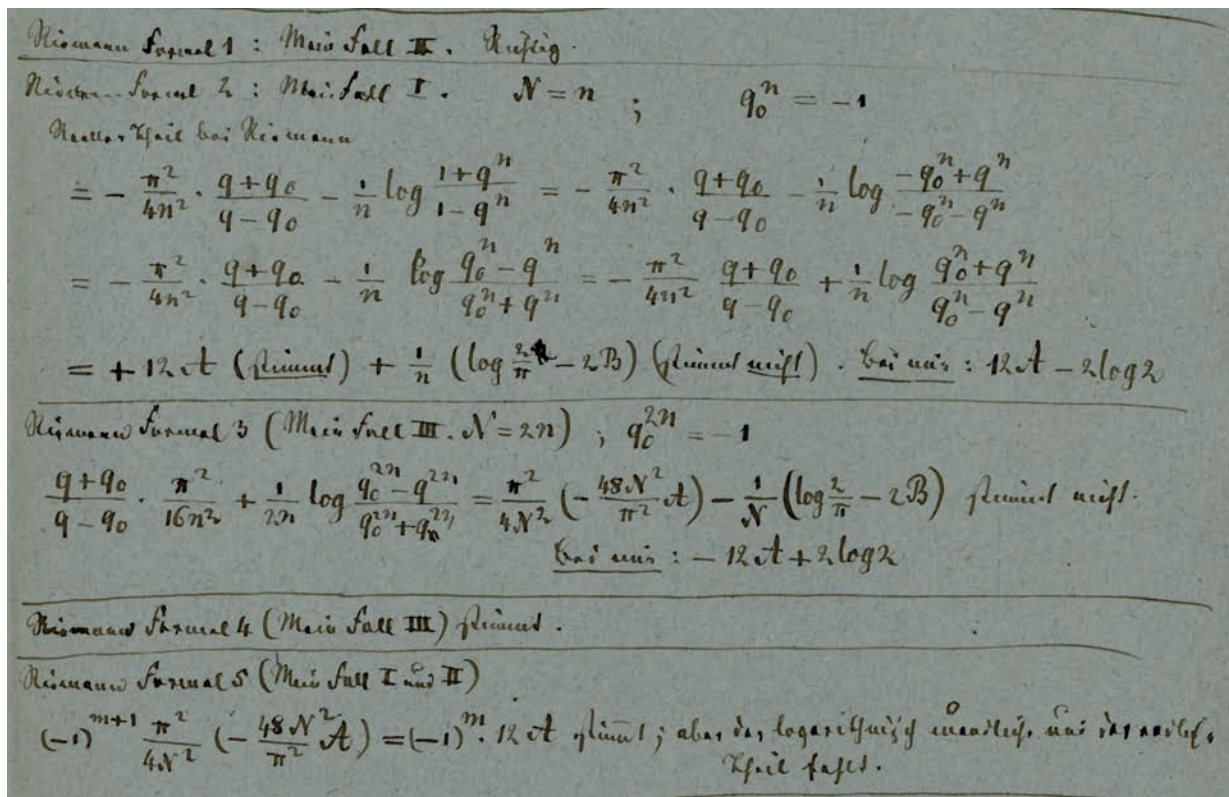 Riemann Formel 1 : Mein Fall II. Richtig.
Riemann Formel 2 : Mein Fall I. N = n ; q_0^n = -1
Reeller Theil bei Riemann
= - \frac{π^2}{4n^2} · \frac{q+q_0}{q-q_0} - \frac{1}{n} log \frac{1+q^n}{1-q^n} = - \frac{π^2}{4n^2} · \frac{q+q_0}{q-q_0} - \frac{1}{n} log \frac{-q_0^n+q^n}{-q_0^n-q^n}
= - \frac{π^2}{4n^2} · \frac{q+q_0}{q-q_0} - \frac{1}{n} log \frac{q_0^n-q^n}{q_0^n+q^n} = - \frac{π^2}{4n^2} \frac{q+q_0}{q-q_0} + \frac{1}{n} log \frac{q_0^n+q^n}{q_0^n-q^n}
= + 12 A (stimmt) + \frac{1}{n} (log \frac{2}{π} - 2B) (stimmt nicht). Bei mir : 12 A - 2 log 2
Riemann Formel 3 (Mein Fall III. N = 2n) ; q_0^{2n} = -1
\frac{q+q_0}{q-q_0} · \frac{π^2}{16n^2} + \frac{1}{2n} log \frac{q_0^{2n}-q^{2n}}{q_0^{2n}+q_0^{2n}} = \frac{π^2}{4N^2} (- \frac{48N^2}{π^2} A) - \frac{1}{N} (log \frac{2}{π} - 2B) stimmt nicht.
Bei mir : - 12 A + 2 log 2
Riemann Formel 4 (Mein Fall III) stimmt.
Riemann Formel 5 (Mein Fall I und II)
(-1)^{m+1} \frac{π^2}{4N^2} (- \frac{48N^2}{π^2} A) = (-1)^m · 12 A stimmt ; aber der logarithmisch unendliche und der endliche
Theil fehlt.